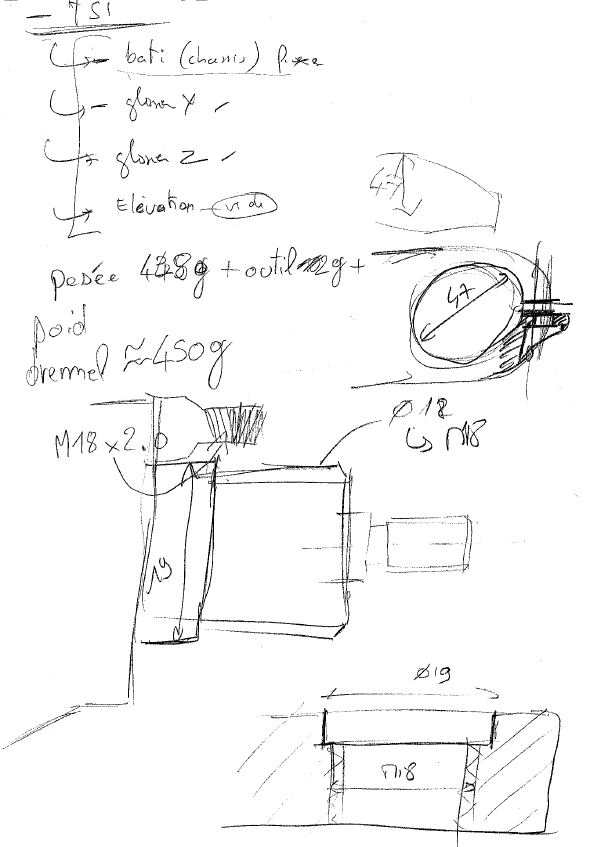 - 7 SI
- bati (chassis)
- glissière X
- glissière Z
- Elévation vide
47
pesée 438g + outil 2g +
poid
dremel ≈ 450g
47
Ø 18
↳ M18
M18 x 2.0
19
Ø19
M18